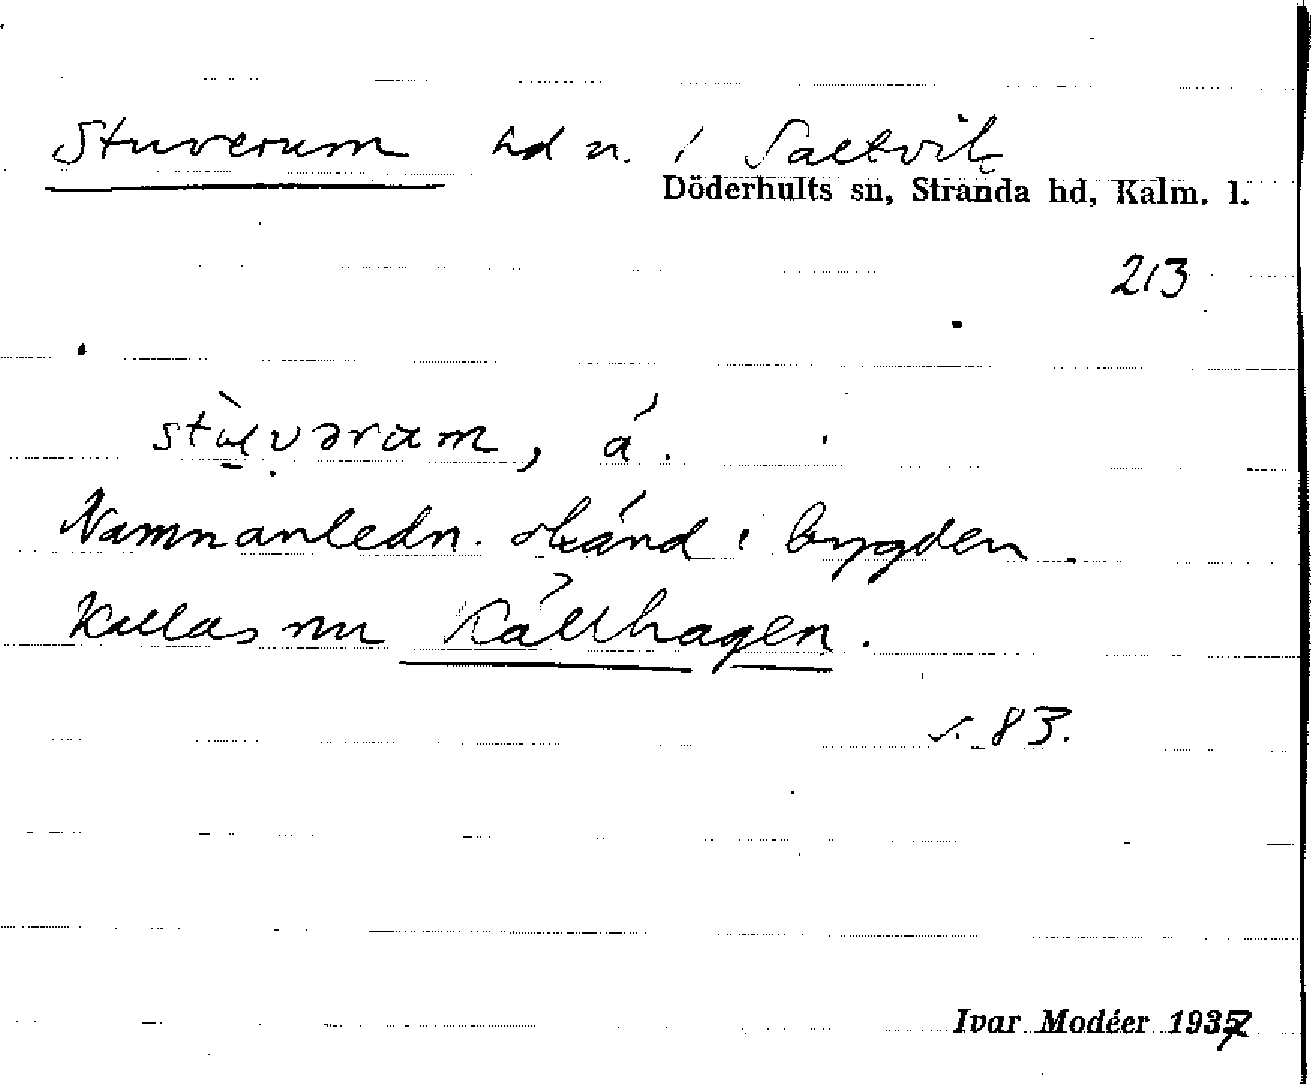 Stuverum hd n. i Saltvik
Döderhults sn, Stranda hd, Kalm. l.
213
stu̲vəram, á.
Namnanledn. okänd i bygden.
Kallas nu Källhagen.
s. 83.
Ivar Modéer 1937